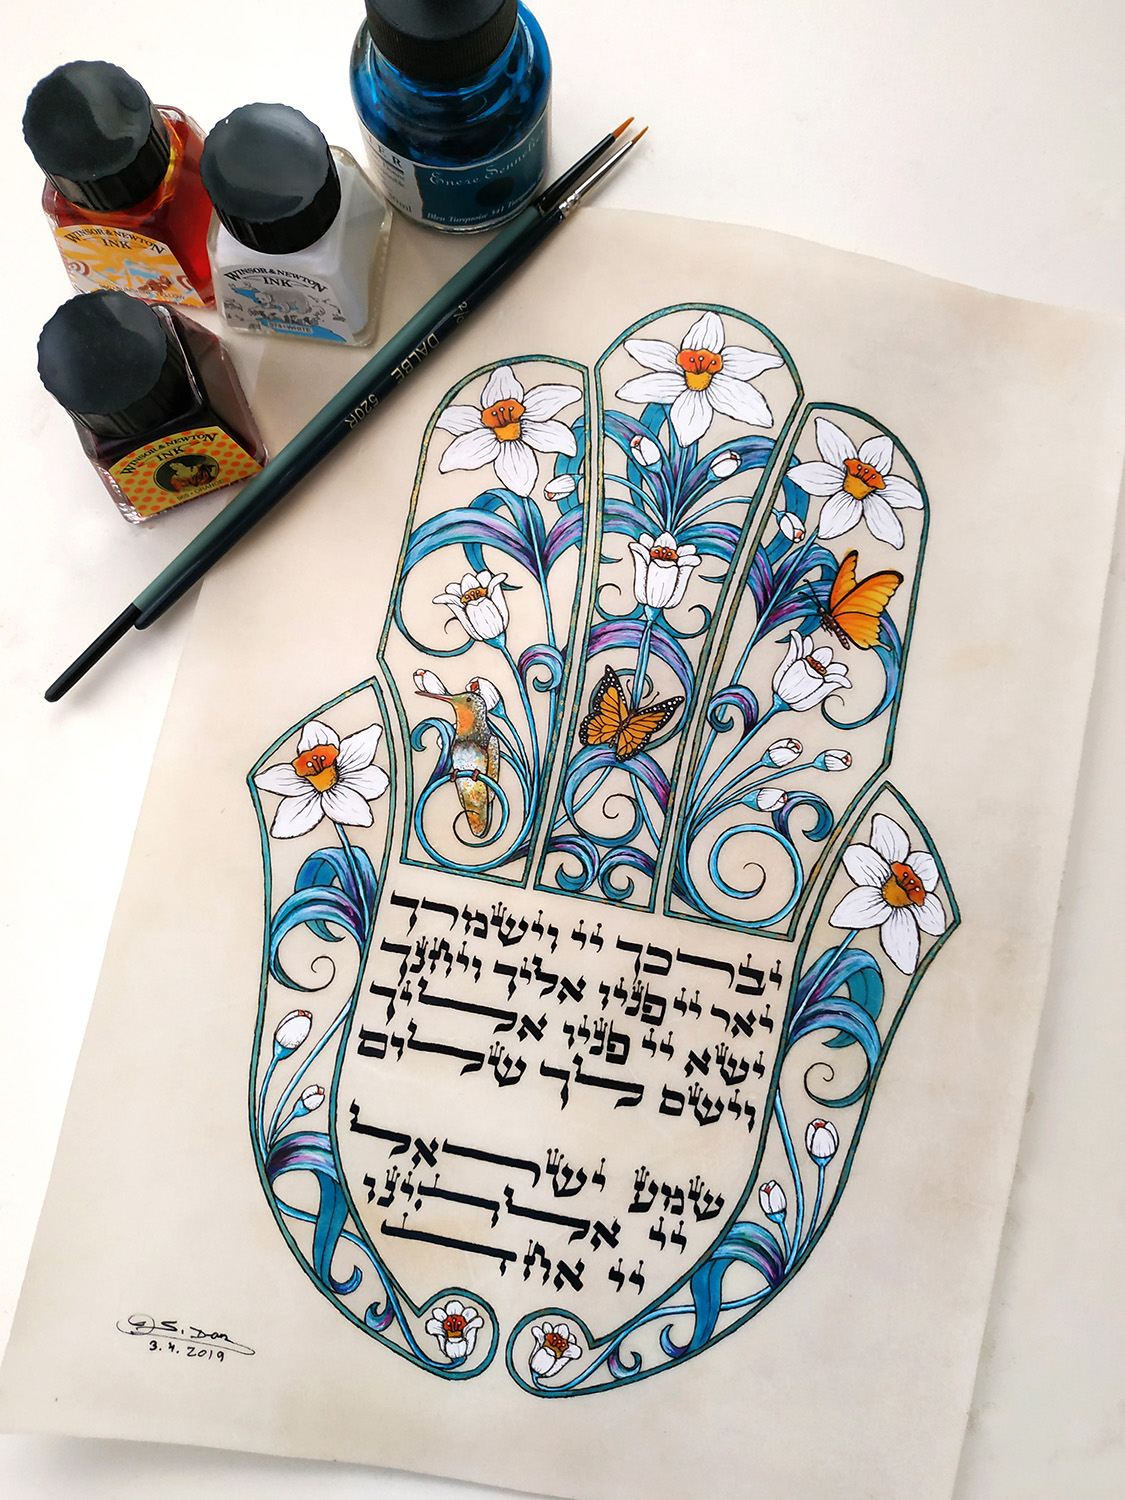 WINSOR & NEWTON
INK
WINSOR & NEWTON
INK
974 • WHITE
WINSOR & NEWTON
INK
Encre Sennelier
Bleu Turquoise
DALBE
520R
יברכך יי וישמרך
יאר יי פניו אליך ויחנך
ישא יי פניו אליך
וישם לך שלום
שמע ישראל
יי אלהינו
יי אחד
S. Dar
3.4.2019